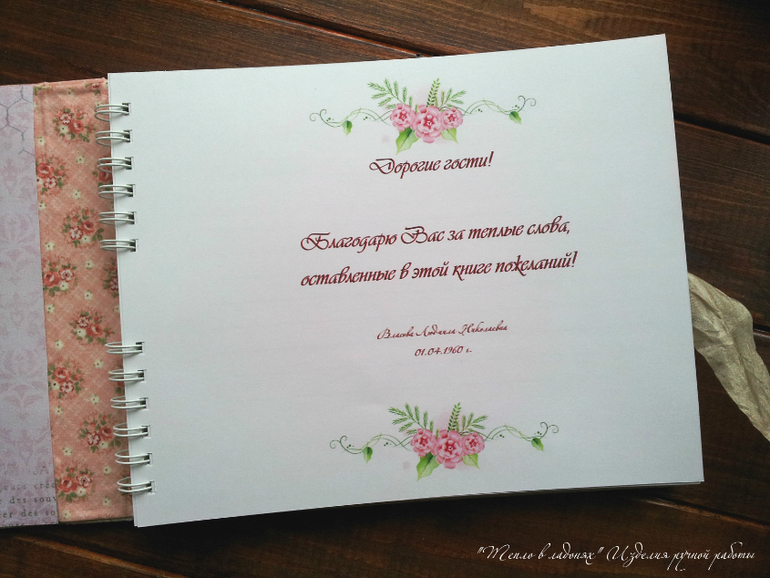 Дорогие гости!
Благодарю Вас за теплые слова,
оставленные в этой книге пожеланий!
Власова Людмила Николаевна
01.04.1960 г.
des souv
"Тепло в ладонях" Изделия ручной работы